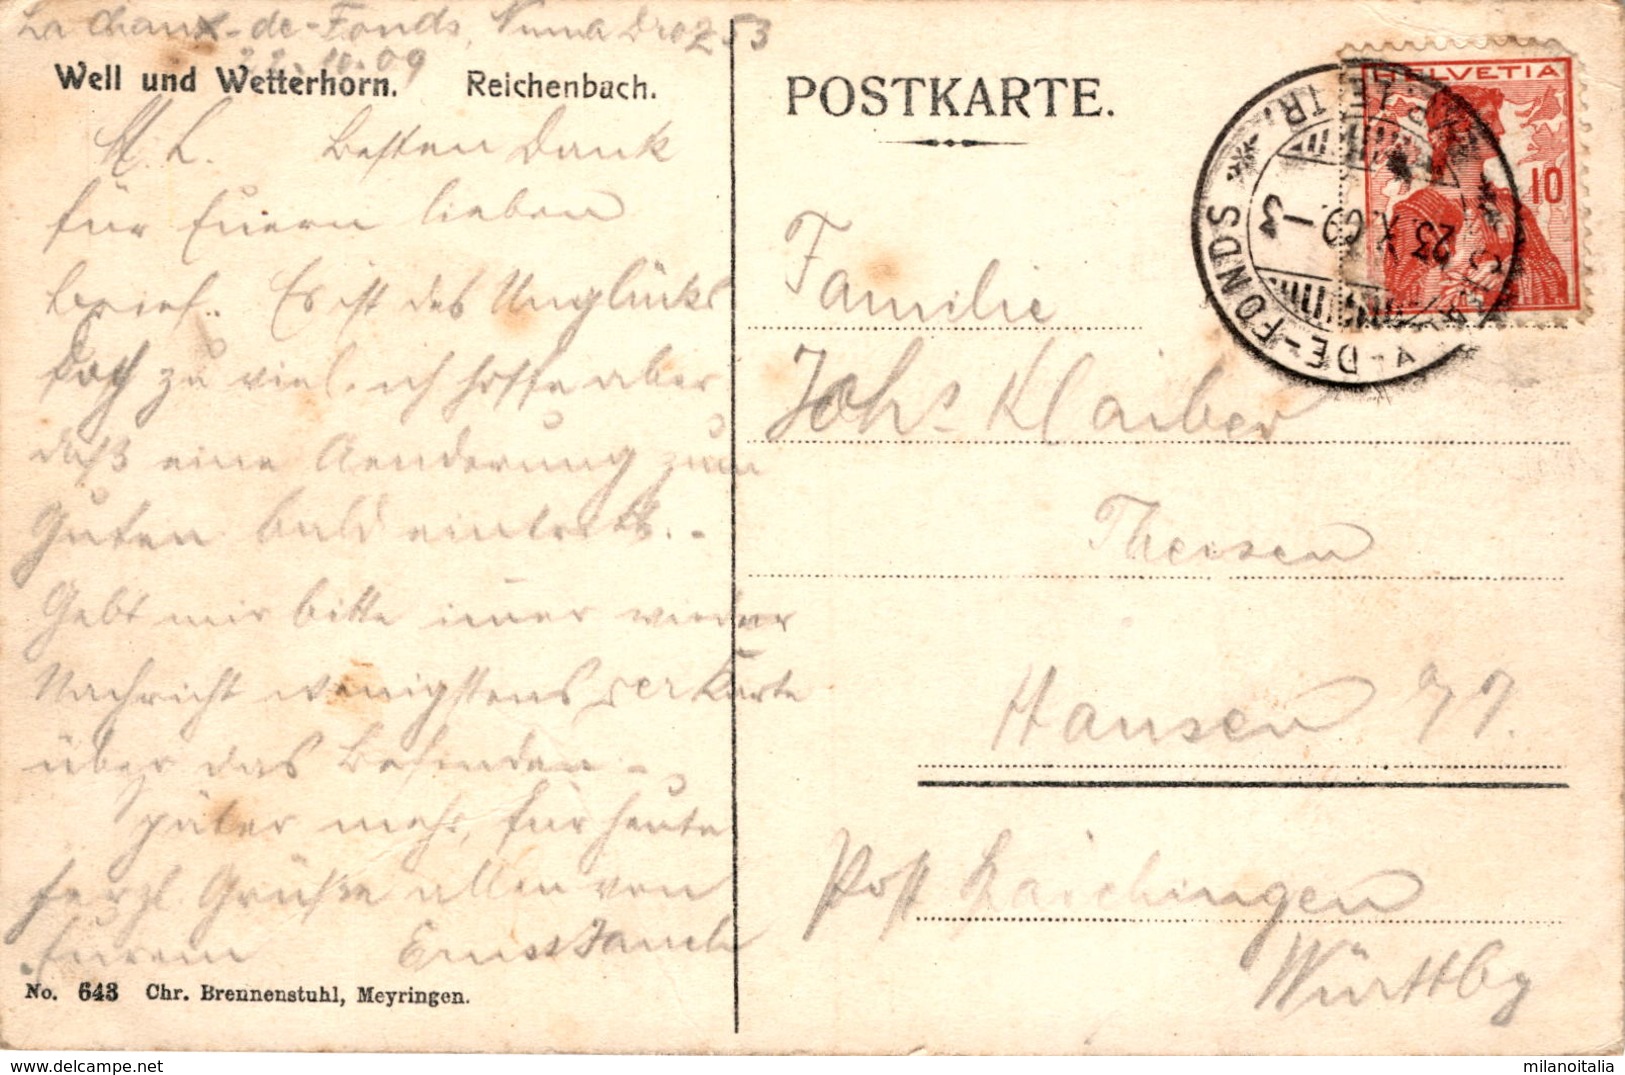 La Chaux-de-Fonds, Numa Droz 53
22.10.09
Well und Wetterhorn. Reichenbach.
M. L. Besten Dank
für Euern lieben
Brief. Es ist des Unglücks
doch zu viel, ich hoffe aber
daß eine Aenderung zum
Guten bald eintritt. -
Gebt mir bitte immer wieder
Nachricht wenigstens per Karte
über das Befinden. -
Später mehr, für heute
herzl. Grüße allen von
Eurem Ernst Jauch
No. 643 Chr. Brennenstuhl, Meyringen.
POSTKARTE.
HELVETIA
10
DE-FONDS
23. X. 09 - 3
LETTR.
Familie
Johs Klaiber
Hausen
Post
Württbg
milanoitalia